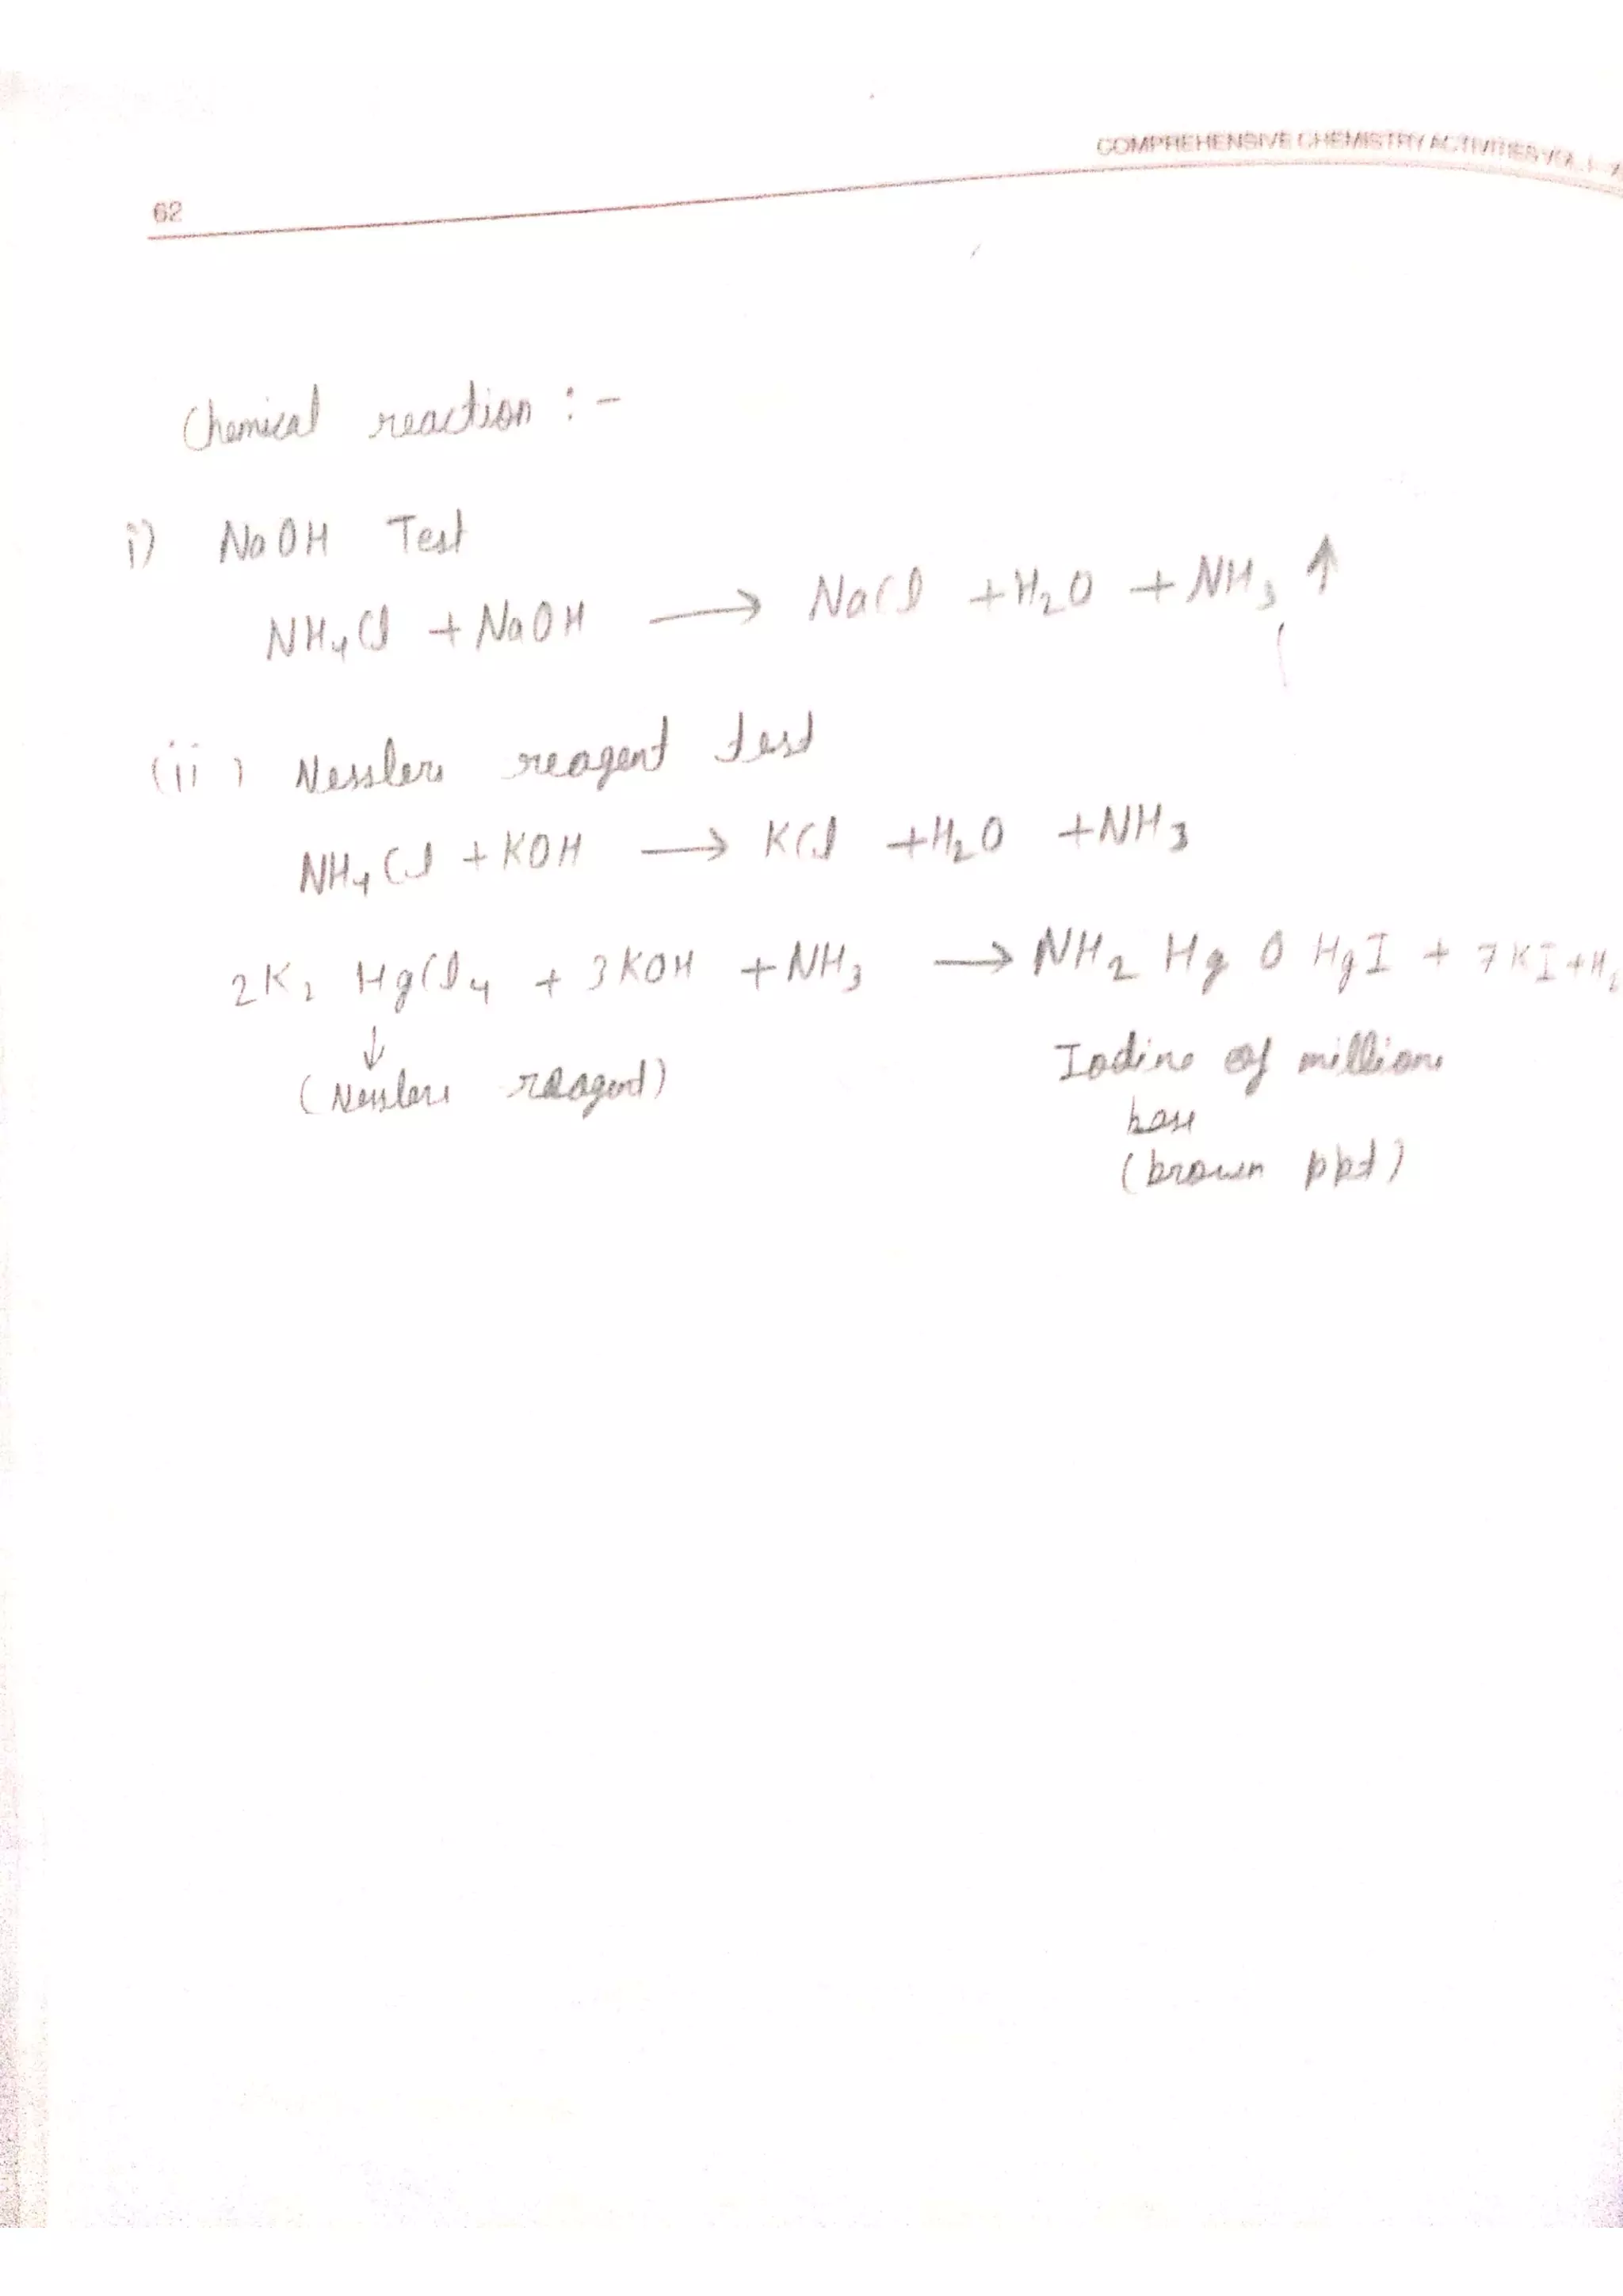 COMPREHENSIVE CHEMISTRY ACTIVITIES VOL. I
62
Chemical reaction :-
i) NaOH Test
NH4Cl + NaOH → NaCl + H2O + NH3 ↑
(ii) Nesslers reagent test
NH4Cl + KOH → KCl + H2O + NH3
2K2 HgCl4 + 3KOH + NH3 → NH2 Hg O HgI + 7KI + H2
↓
(Nesslers reagent)
Iodine of millions
base
(brown ppt)